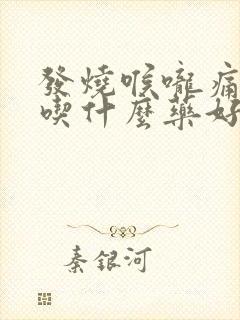 發燒喉嚨痛
喫什麼藥好
秦銀河